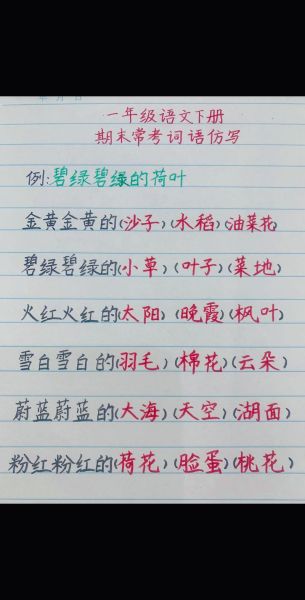 一年级语文下册
期末常考词语仿写
例:碧绿碧绿的荷叶
金黄金黄的(沙子)(水稻)(油菜花)
碧绿碧绿的(小草)(叶子)(菜地)
火红火红的(太阳)(晚霞)(枫叶)
雪白雪白的(羽毛)(棉花)(云朵)
蔚蓝蔚蓝的(大海)(天空)(湖面)
粉红粉红的(荷花)(脸蛋)(桃花)